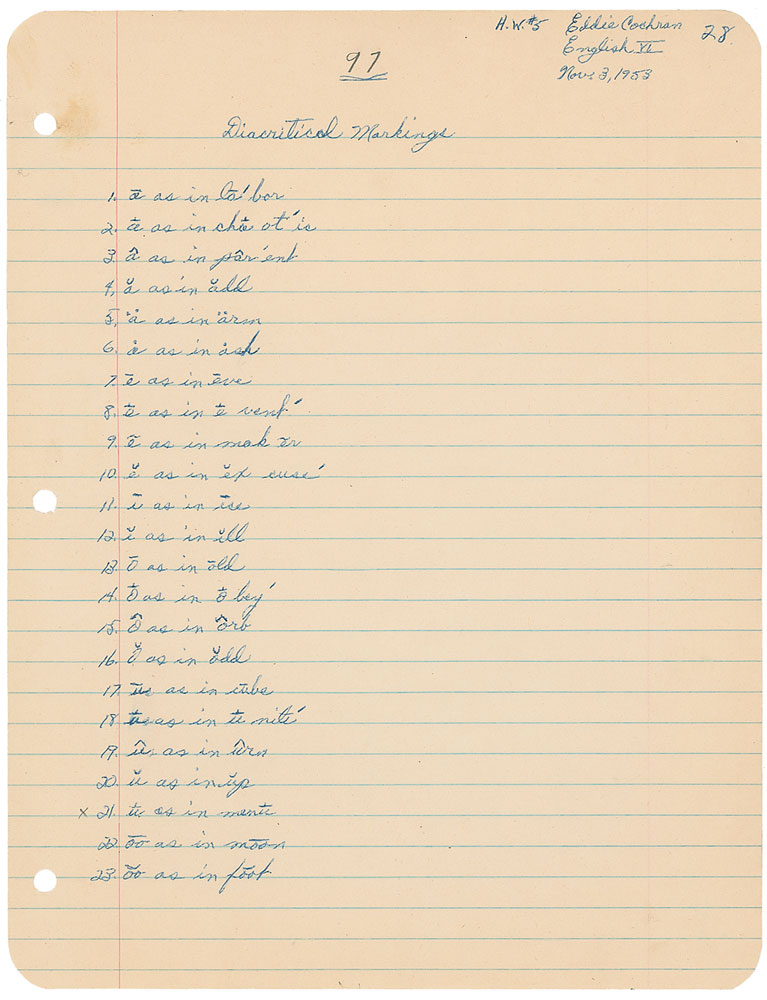 H.W.#5 Eddie Cochran 28
English VI
Nov. 3, 1953
97
Diacritical Markings
1. ā as in lā′bor
2. ǡ as in chǡ ot′ic
3. â as in pâr′ent
4. ă as in ădd
5. ä as in ärm
6. ȧ as in ȧsk
7. ē as in ēve
8. ė̄ as in ė̄ vent′
9. ẽ as in mak ẽr
10. ĕ as in ĕx cuse′
11. ī as in īce
12. ĭ as in ĭll
13. ō as in ōld
14. ȱ as in ȱ bey′
15. ô as in ôrb
16. ŏ as in ŏdd
17. ū as in cūbe
18. u̇̄ as in u̇̄ nite′
19. û as in ûrn
20. ŭ as in ŭp
x 21. u̇̄ as in menu̇̄
22. o͞o as in mo͞on
23. o͝o as in fo͝ot